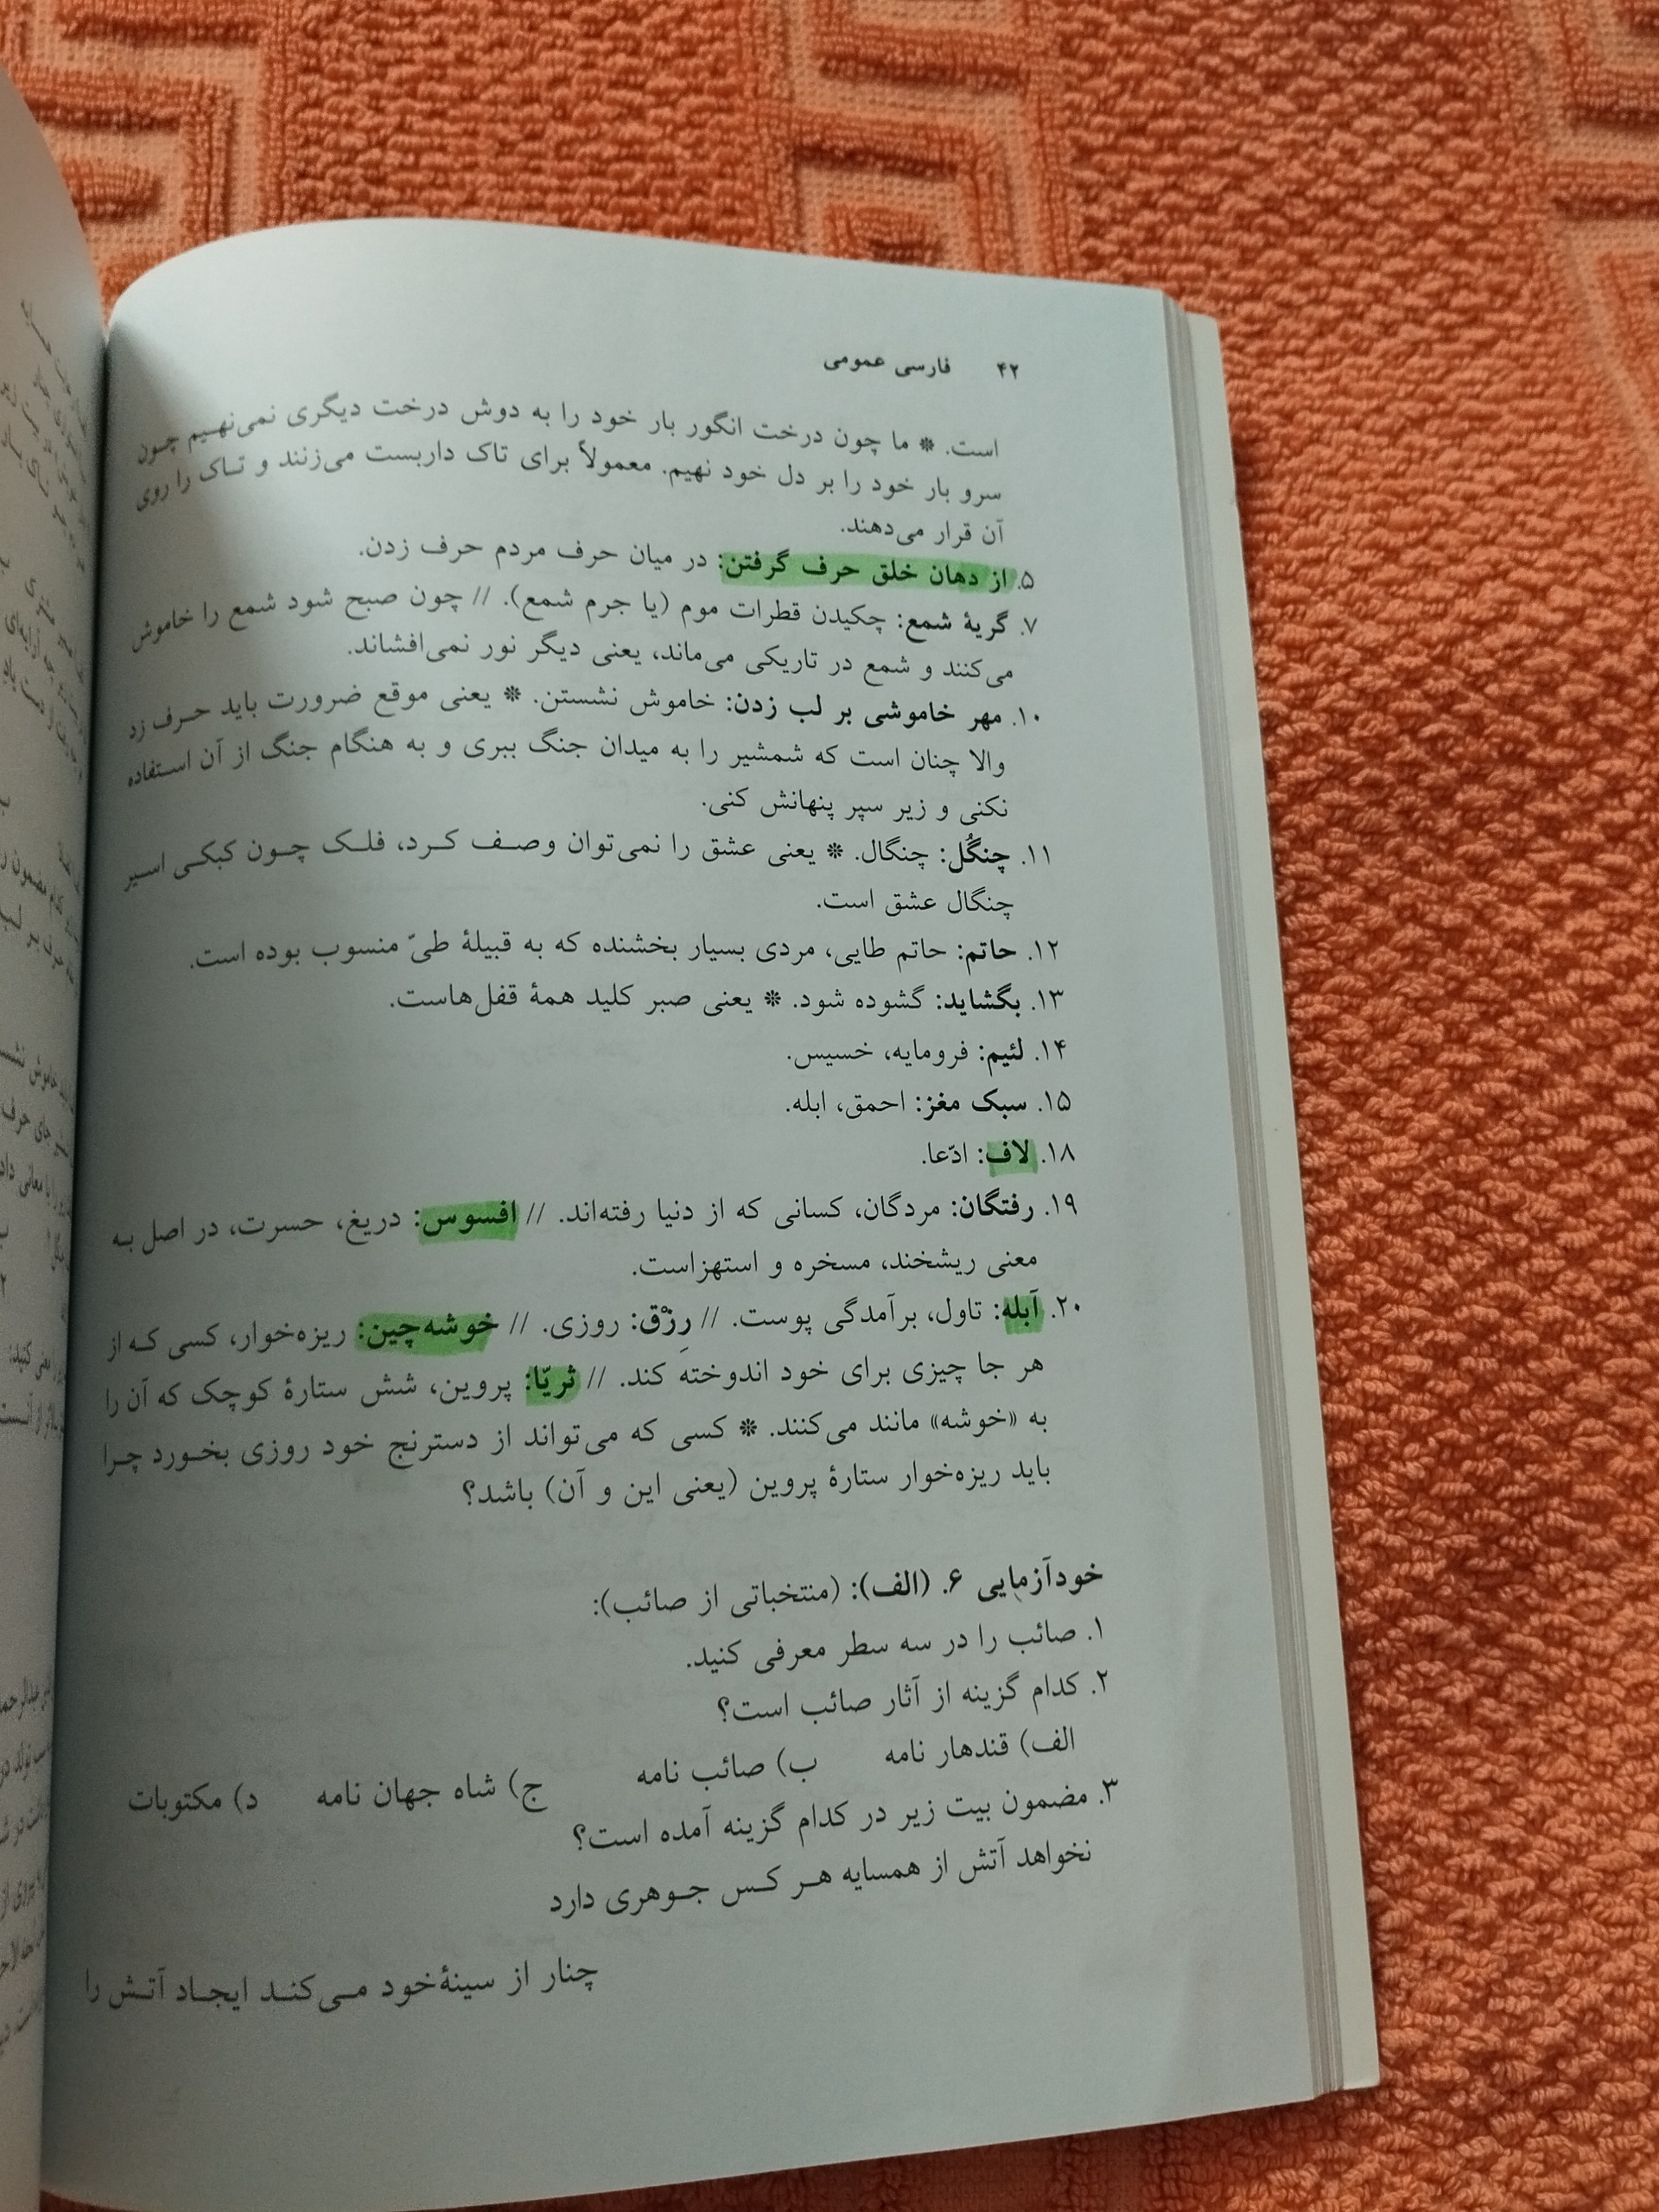 ۴۲ فارسی عمومی
است. * ما چون درخت انگور بار خود را به دوش درخت دیگری نمی‌نهیم چون
سرو بار خود را بر دل خود نهیم. معمولاً برای تاک داربست می‌زنند و تاک را روی
آن قرار می‌دهند.
۵. از دهان خلق حرف گرفتن: در میان حرف مردم حرف زدن.
۷. گریهٔ شمع: چکیدن قطرات موم (یا جرم شمع). // چون صبح شود شمع را خاموش
می‌کنند و شمع در تاریکی می‌ماند، یعنی دیگر نور نمی‌افشاند.
۱۰. مهر خاموشی بر لب زدن: خاموش نشستن. * یعنی موقع ضرورت باید حرف زد
والا چنان است که شمشیر را به میدان جنگ ببری و به هنگام جنگ از آن استفاده
نکنی و زیر سپر پنهانش کنی.
۱۱. چنگُل: چنگال. * یعنی عشق را نمی‌توان وصف کرد، فلک چون کبکی اسیر
چنگال عشق است.
۱۲. حاتم: حاتم طایی، مردی بسیار بخشنده که به قبیلهٔ طیّ منسوب بوده است.
۱۳. بگشاید: گشوده شود. * یعنی صبر کلید همهٔ قفل‌هاست.
۱۴. لئیم: فرومایه، خسیس.
۱۵. سبک مغز: احمق، ابله.
۱۸. لاف: ادّعا.
۱۹. رفتگان: مردگان، کسانی که از دنیا رفته‌اند. // افسوس: دریغ، حسرت، در اصل به
معنی ریشخند، مسخره و استهزاست.
۲۰. آبله: تاول، برآمدگی پوست. // رِزْق: روزی. // خوشه‌چین: ریزه‌خوار، کسی که از
هر جا چیزی برای خود اندوخته کند. // ثریّا: پروین، شش ستارهٔ کوچک که آن را
به «خوشه» مانند می‌کنند. * کسی که می‌تواند از دسترنج خود روزی بخورد چرا
باید ریزه‌خوار ستارهٔ پروین (یعنی این و آن) باشد؟
خودآزمایی ۶. (الف): (منتخباتی از صائب):
۱. صائب را در سه سطر معرفی کنید.
۲. کدام گزینه از آثار صائب است؟
الف) قندهار نامه ب) صائب نامه ج) شاه جهان نامه د) مکتوبات
۳. مضمون بیت زیر در کدام گزینه آمده است؟
نخواهد آتش از همسایه هر کس جوهری دارد
چنار از سینهٔ‌خود می‌کند ایجاد آتش را